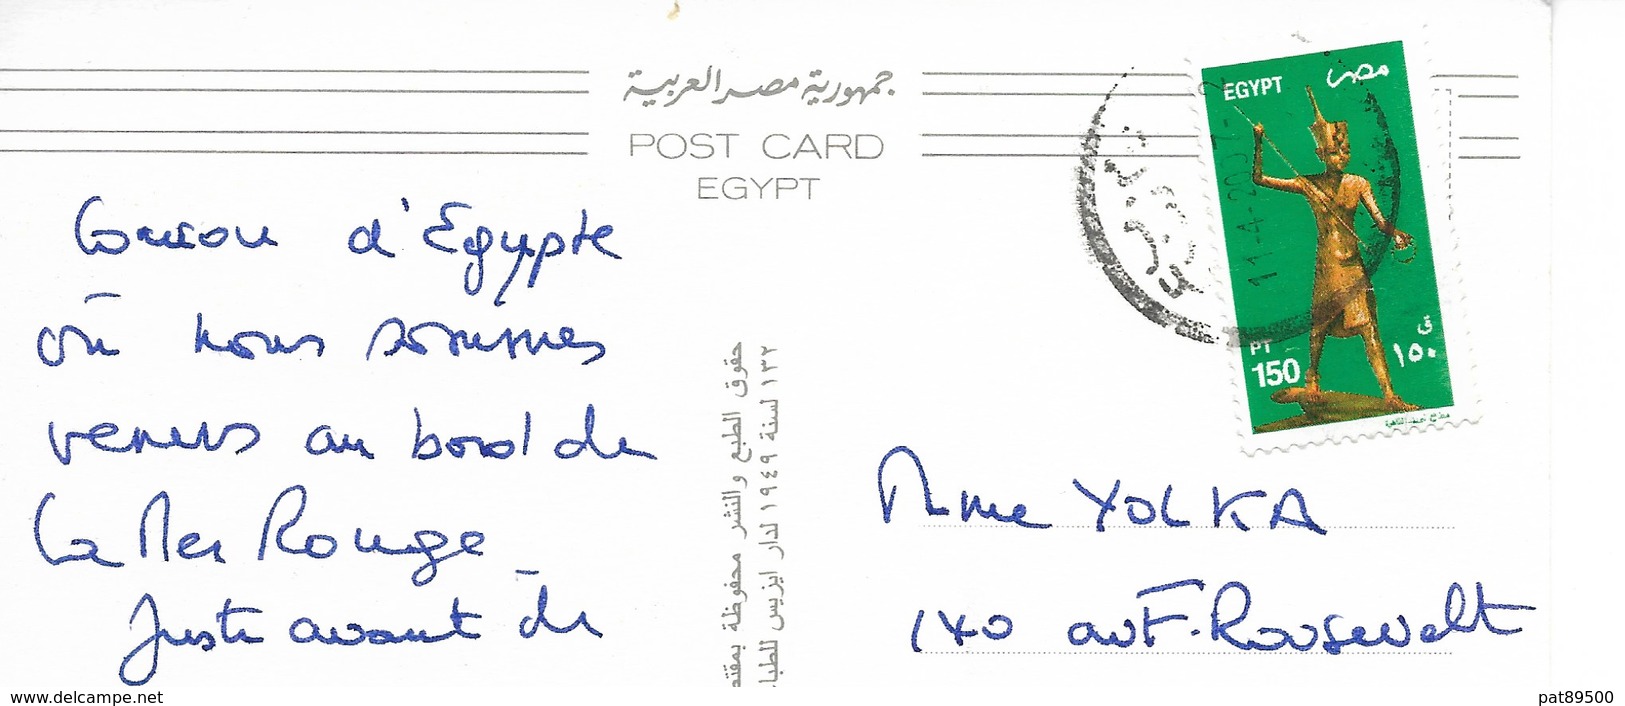 جمهورية مصر العربية
POST CARD
EGYPT
EGYPT مصر
11-4-2007
PT
150
ق
١٥٠
d'Egypte
où nous sommes
venus au bord de
La Mer Rouge
juste avant de
حقوق الطبع والنشر محفوظة بمقتض
١٣٢ لسنة ١٩٤٩ لدار ايزيس للطباء
Mme YOLKA
140 av F. Roosevelt
www.delcampe.net
pat89500